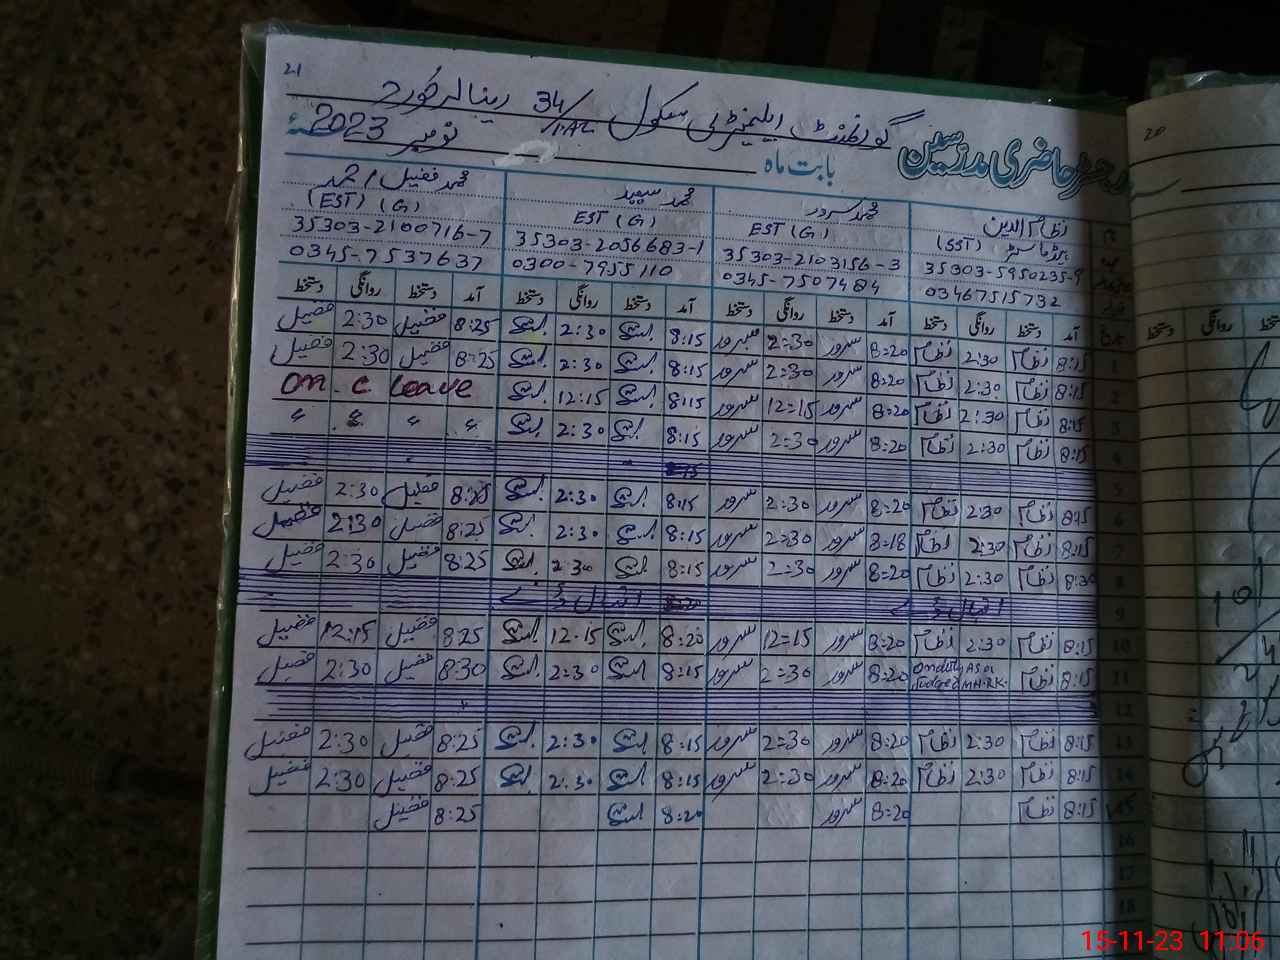 21
گورنمنٹ ایلیمنٹری سکول 34/ رینالہ خورد
رجسٹر حاضری مدرسین بابت ماہ نومبر 2023ء
20
نظام الدین محمد سرور محمد سعید محمد فضیل احمد
ہیڈ ماسٹر (SST) EST (G) EST (G) (EST) (G)
35303-5950235-9 35303-2103156-3 35303-2056683-1 35303-2100716-7
03467515732 0345-7507484 0300-7955110 0345-7537637
آمد دستخط روانگی دستخط آمد دستخط روانگی دستخط آمد دستخط روانگی دستخط آمد دستخط روانگی دستخط روانگی دستخط
1 8:15 نظام 2:30 نظام 8=20 سرور 2=30 سرور 8:15 2:30 8:25 فضیل 2:30 فضیل
2 8:15 نظام 2:30 نظام 8=20 سرور 2=30 سرور 8:15 2:30 8:25 فضیل 2:30 فضیل
3 8:15 نظام 2:30 نظام 8=20 سرور 12=15 سرور 8:15 12:15 on c leave
4 8:15 نظام 2:30 نظام 8=20 سرور 2=30 سرور 8:15 2:30 〃 〃 〃 〃
5 8:15
6 8:15 نظام 2:30 نظام 8=20 سرور 2=30 سرور 8:15 2:30 8:25 فضیل 2:30 فضیل
7 8:15 نظام 2:30 نظام 8=18 سرور 2=30 سرور 8:15 2:30 8:25 فضیل 2:30 فضیل
8 8:30 نظام 2:30 نظام 8=20 سرور 2=30 سرور 8:15 2:30 8:25 فضیل 2:30 فضیل
9 اقبال ڈے اقبال ڈے
10 8:15 نظام 2:30 نظام 8=20 سرور 12=15 سرور 8:20 12:15 8:25 فضیل 12:15 فضیل
11 8:15 نظام on duty As a Judge 8=20 سرور 2=30 سرور 8:15 2=30 8:30 فضیل 2:30 فضیل
12
13 8:15 نظام 2:30 نظام 8=20 سرور 2=30 سرور 8:15 2:30 8:25 فضیل 2:30 فضیل
14 8:15 نظام 2:30 نظام 8=20 سرور 2=30 سرور 8:15 2:30 8:25 فضیل 2:30 فضیل
15 8:15 نظام 8=20 سرور 8:20 8:25 فضیل
16
17
18
15-11-23 11:06